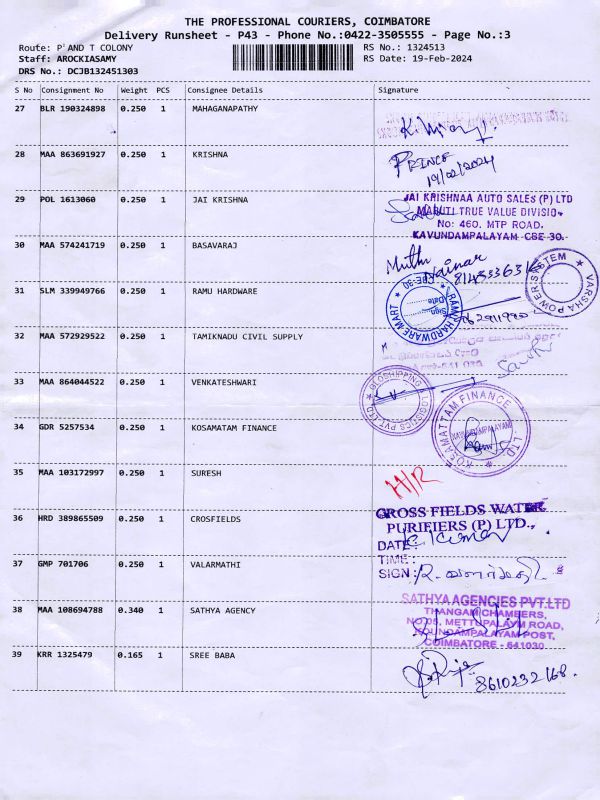 THE PROFESSIONAL COURIERS, COIMBATORE
Delivery Runsheet - P43 - Phone No.:0422-3505555 - Page No.:3
Route: P AND T COLONY
RS No.: 1324513
Staff: AROCKIASAMY
RS Date: 19-Feb-2024
DRS No.: DCJB132451303
S No Consignment No Weight PCS Consignee Details Signature
27 BLR 190324898 0.250 1 MAHAGANAPATHY
28 MAA 863691927 0.250 1 KRISHNA
PRINCE
19/02/2024
29 POL 1613060 0.250 1 JAI KRISHNA
JAI KRISHNAA AUTO SALES (P) LTD
MARUTI TRUE VALUE DIVISION
No: 460, MTP ROAD,
KAVUNDAMPALAYAM CBE-30.
30 MAA 574241719 0.250 1 BASAVARAJ
Muthu Nainar
VARSHA POWER SYSTEM
31 SLM 339949766 0.250 1 RAMU HARDWARE
RAMU HARDWARE MART
CBE-30
Date
Sign
32 MAA 572929522 0.250 1 TAMIKNADU CIVIL SUPPLY
33 MAA 864044522 0.250 1 VENKATESHWARI
GLOSHIPPING LOGISTICS PVT LTD
34 GDR 5257534 0.250 1 KOSAMATAM FINANCE
KOSAMATTAM FINANCE LTD.
KAVUNDAMPALAYAM
35 MAA 103172997 0.250 1 SURESH
H/R
36 HRD 389865509 0.250 1 CROSFIELDS
CROSS FIELDS WATER
PURIFIERS (P) LTD.,
DATE:
TIME:
37 GMP 701706 0.250 1 VALARMATHI
SIGN:
R. வளர்மதி
38 MAA 108694788 0.340 1 SATHYA AGENCY
SATHYA AGENCIES PVT.LTD
THANGAM CHAMBERS,
NO.05, METTUPALAYM ROAD,
KOUNDAMPALAYAM POST,
COIMBATORE - 641030
39 KRR 1325479 0.165 1 SREE BABA
8610232168.